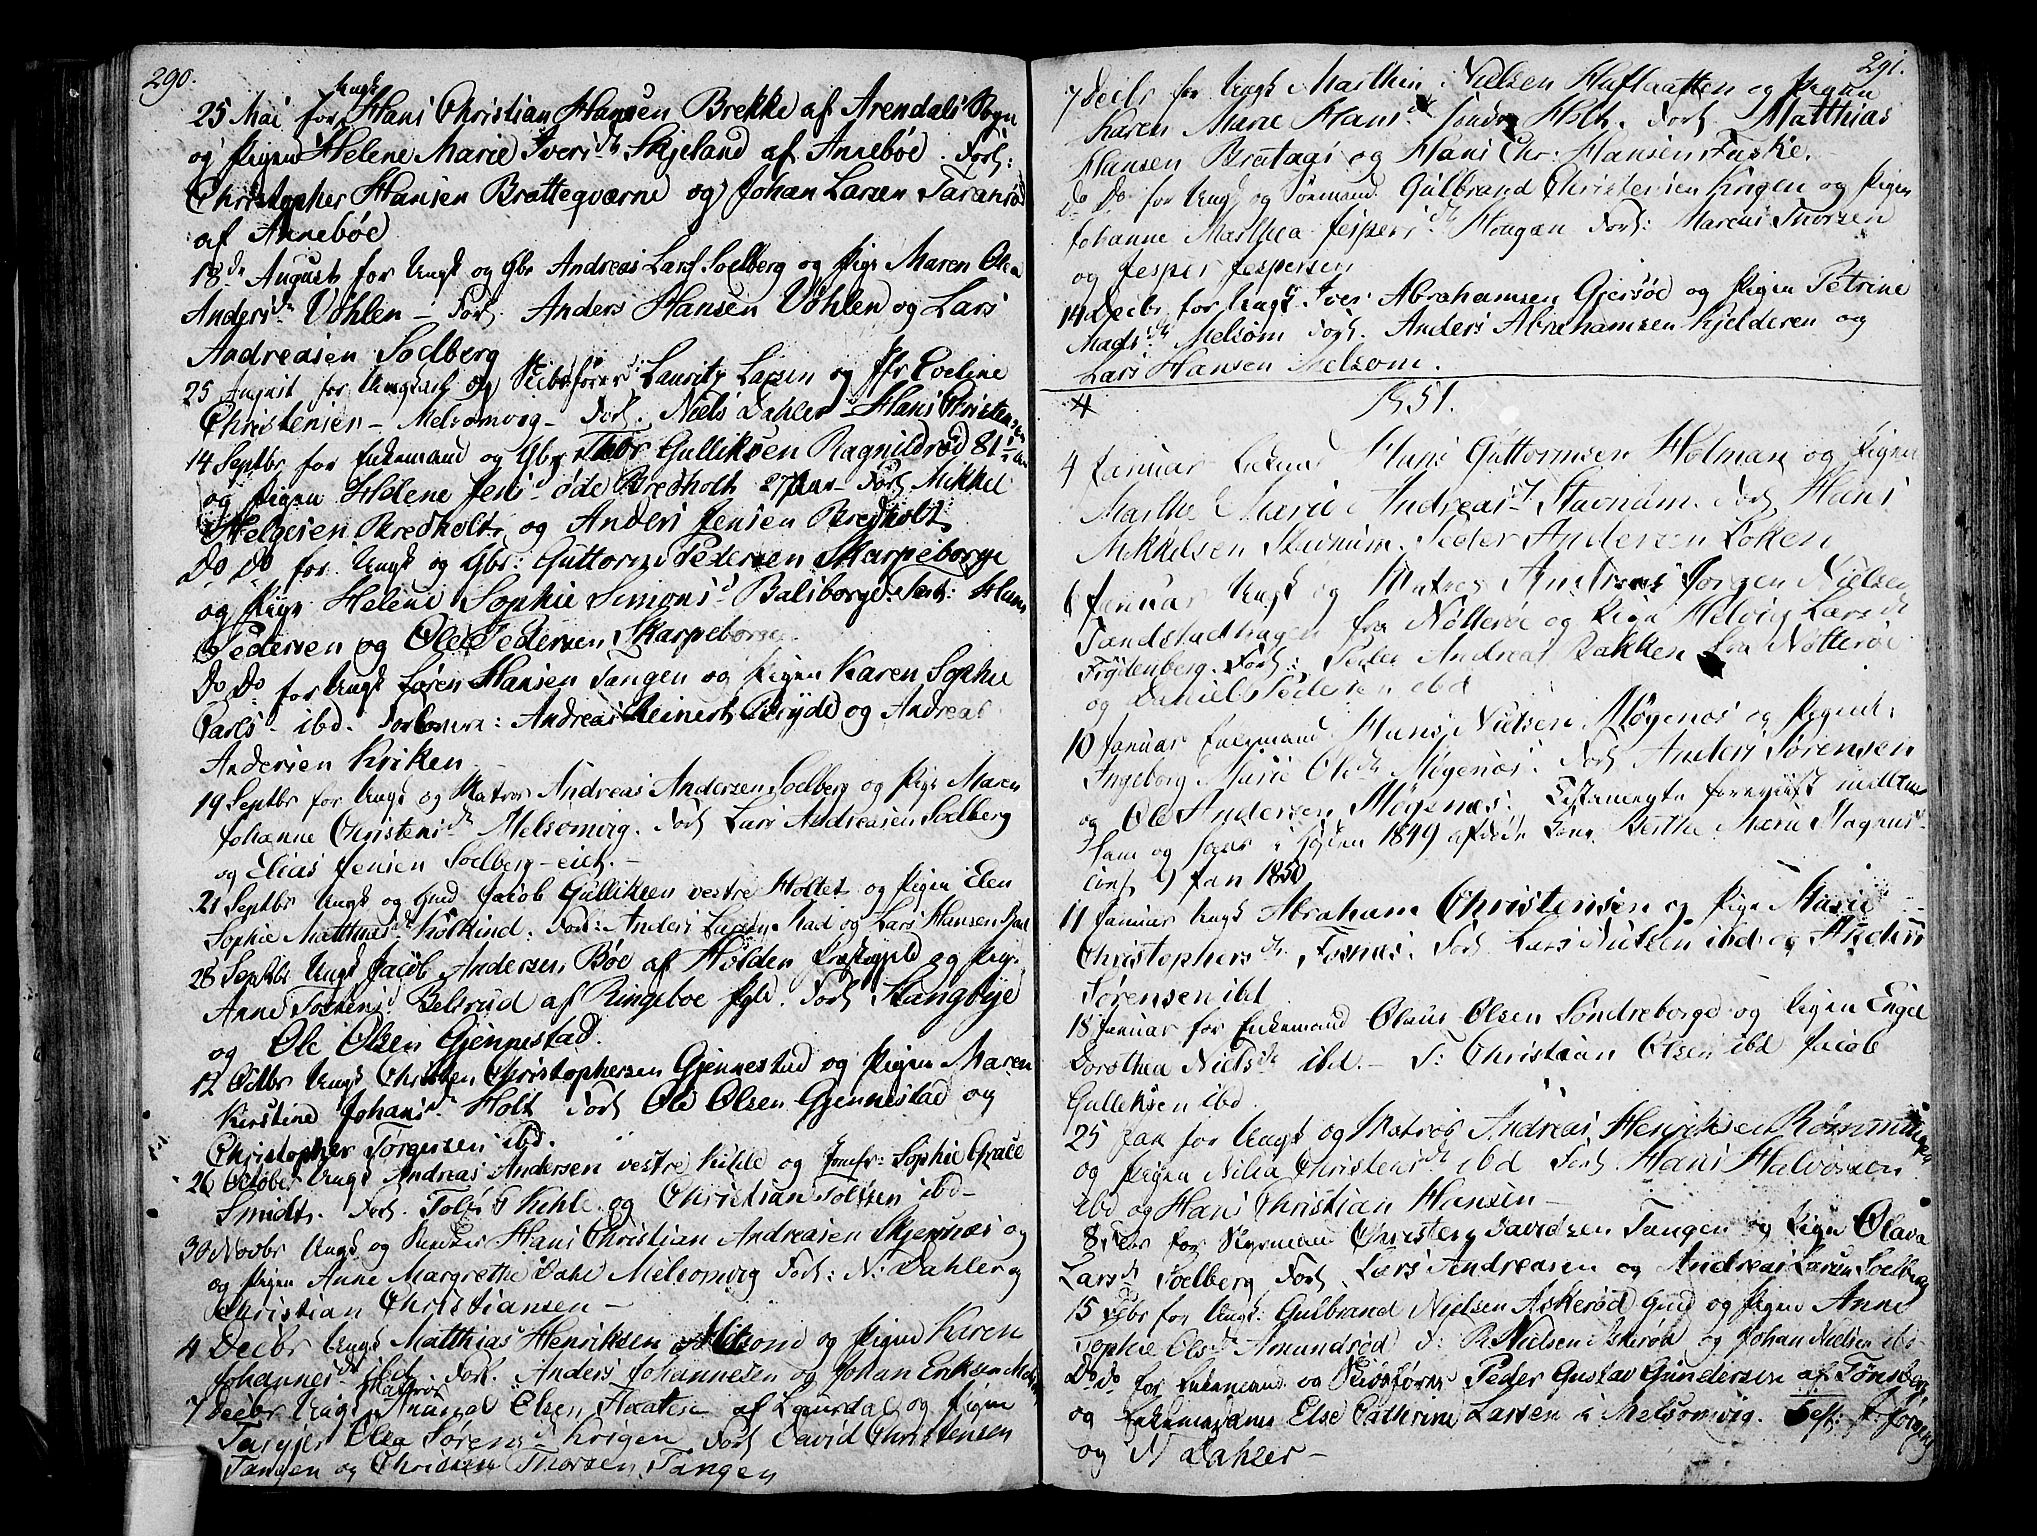 290.
Ungk
25 Mai for Hans Christian Hansen Brekke af Arendals Sogn
og Pigen Helene Marie Iversdr Skjeland af Annebøe. Forl:
Christopher Hansen Bratteqværne og Johan Larsen Faranrød
af Annebøe
18de August for Ungk og Gbr Andreas Lars. Soelberg og Pige Maren Olea
Andersdr Vøhlen – Forl. Anders Hansen Vøhlen og Lars
Andreasen Soelberg
25 August for Ungkarl og Skibsfører Lauritz Larsen og Jfr Eveline
Christensen – Melsomvig – Forl. Niels Dahler – Hans Christensen
14 Septbr for Enkemand og Gbr Thor Gulliksen Ragnildrød 81
og Pigen Helene Jens øde Bredholt 27 Aar – Forl. Mikkel
Helgesen Bredholt og Anders Jensen Bredholt
Do Do for Ungk og Gbr: Guttorm Pedersen Skarpeborge
og Pige Helene Sophie Simons Balsborge. Forl: Hans
Pedersen og Ole Pedersen Skarpeborge
Do Do for Ungk Søren Hansen Tangen og Pigen Karen Sophie
Carls – ibd. Forlovere: Andreas Reinert Bryde og Andreas
Andersen Kriken
19 Septbr for Ungk og Matros Andreas Andersen Soelberg og Pige Maren
Johanne Christensdr Melsomvig. Forl Lars Andreasen Soelberg
og Elias Jensen Soelberg – eiet. –
21 Septbr Ungk og Gmd Jacob Gulliksen vestre Holtet og Pigen Elen
Sophie Matthiasdr Kolkind. Forl: Anders Larsen Rød og Lars Hansen
28 Septbr Ungk Jacob Andersen Bøe af Holden Præstegjeld og Pige
Anne Tostens Belsrud af Ringeboe Pgld. Forl Stangbye
og Ole Olsen Gjennestad.
12 Octbr Ungk Christen Christophersen Gjennestad og Pigen Maren
Kirstine Johansdr Holt Forl Ole Olsen Gjennestad og
Christopher Torgersen ibd.
26 October Ungk Andreas Andersen vestre Kihle og Jomfr: Sophie Grace
Smidt. Forl. Kihle og Christian ibd –
30 Novbr Ungk og Hans Christian Andreasen Skjernæs og
og Pigen Anne Margrethe Dahl Melsomvig Forl: N. Dahler og
Christian Christiansen –
4 Decbr Ungk Matthias Henriksen Melsom og Pigen Karen
Johannesdr ibd Forl. Anders Johannesen og Johan Eriksen
Matros
7 Decbr Ungk Elsen af og Pigen
Olea Sørens Krigen Forl David Christensen
Tangen og Thorsen Tangen
291.
7 Decbr for Ungk Marthin Nielsen Haftaatten og Pigen
Karen Marie Hansdr søndre Holt. Forl. Matthias
Hansen Bratagr og Hans Chr: Hansen Faske.
Do Do for Ungk og Sømand Gulbrand Christensen Krigen og Pigen
Johanne Marthea Jespersdr Hougan Forl: Marcus Thorsen
og Jesper Jespersen
14 Decbr for Ungk Iver Abrahamsen Gjersøe og Pigen Petrine
Madsdr Melsom Forl. Anders Abrahamsen Kjelderen og
Lars Hansen Melsom.
1851.
4 Januar Enkemd Hans Guttormsen Holman og Pigen
Marthe Marie Andreasdr Stavnum. Forl Hans
Mikkelsen Stavnum. Peder Andersen Løken
6 Januar Ungk og Matros Andreas Jørgen Nielsen
fra Nøtterøe og Pige Helvig Larsdr
Frydenberg. Forl: Peder Andreas Bakken fra Nøtterøe
og Daniel Pedersen ibd
10 Januar Enkemand Hans Nielsen Møgenæs og Pigen
Ingeborg Marie Olsdr Møgenæs. Forl Anders Sørensen
og Ole Andersen Møgenæs. Testamente foreviist mellem
ham og hans i Julen 1849 afdøde Kone Berthe Marie
conf. 9 Jan 1850
11 Januar Ungk Abraham Christensen og Pige Marie
Christophersdr Fosnæs. Forl Lars Nielsen ibd og Anders
Sørensen ibd
18 Januar for Enkemand Olaus Olsen Søndreborge og Pigen Engel
Dorothea Nielsdr ibd. – F: Christian Olsen ibd Jacob
Gulliksen ibd.
25 Jan for Ungk og Matros Andreas Henriksen
og Pigen Nilia Christensdr ibd Forl Hans Halvorsen
ibd og Hans Christian Hansen –
8 Febr for Styrmand Christen Davidsen Tangen og Pigen Olava
Larsdr Soelberg Forl. Lars Andreasen og Andreas Larsen Soelberg
15 Febr for Ungk: Gulbrand Nielsen Askerød Gmd og Pigen Anne
Sophie Olsdr Amundrød F: R. Nielsen Askerød og Johan Nielsen ibd
Do Do for Enkemand og Skibsfører Peder Gustav Gundersen af Tønsberg
og Enkemadame Else Cathrine Larsen i Melsomvig.
og N Dahler –